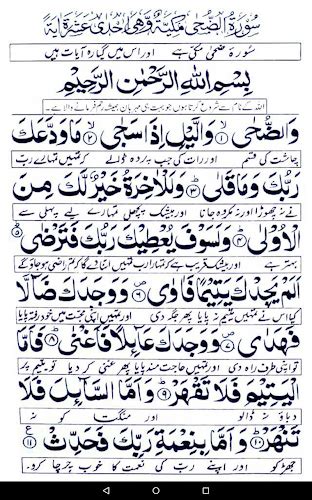 سُوْرَةُ الضُّحٰى مَكِّيَّةٌ وَّهِيَ اِحْدٰى عَشْرَةَ اٰيَةً
سُورۂ ضحیٰ مکی ہے اور اس میں گیارہ آیات ہیں
بِسْمِ اللّٰهِ الرَّحْمٰنِ الرَّحِيْمِ
اللہ کے نام سے شروع کرتا ہوں جو بہت ہی مہربان ہمیشہ رحم فرمانے والا ہے۔
وَالضُّحٰى ۙ‏﴿۱﴾ وَالَّيْلِ اِذَا سَجٰى ۙ‏﴿۲﴾ مَا وَدَّعَكَ
چاشت کی قسم اور رات کی جب پردہ ڈالے کہ تمہیں تمہارے رب
رَبُّكَ وَمَا قَلٰى ؕ‏﴿۳﴾ وَلَلْاٰخِرَةُ خَيْرٌ لَّكَ مِنَ
نے نہ چھوڑا اور نہ مکروہ جانا اور بیشک پچھلی تمہارے لیے پہلی سے
الْاُوْلٰى ؕ‏﴿۴﴾ وَلَسَوْفَ يُعْطِيْكَ رَبُّكَ فَتَرْضٰى ؕ‏﴿۵﴾
بہتر ہے اور بیشک قریب ہے کہ تمہارا رب تمہیں اتنا دے گا کہ تم راضی ہو جاؤ گے
اَلَمْ يَجِدْكَ يَتِيْمًا فَاٰوٰى ۪‏﴿۶﴾ وَوَجَدَكَ ضَآلًّا
کیا اس نے تمہیں یتیم نہ پایا پھر جگہ دی اور تمہیں اپنی محبت میں خود رفتہ پایا
فَهَدٰى ۪‏﴿۷﴾ وَوَجَدَكَ عَآئِلًا فَاَغْنٰى ؕ‏﴿۸﴾ فَاَمَّا
تو اپنی طرف راہ دی اور تمہیں حاجت مند پایا پھر غنی کر دیا تو یتیم پر
الْيَتِيْمَ فَلَا تَقْهَرْ ؕ‏﴿۹﴾ وَاَمَّا السَّآئِلَ فَلَا
دباؤ نہ ڈالو اور منگتا کو نہ
تَنْهَرْ ؕ‏﴿۱۰﴾ وَاَمَّا بِنِعْمَةِ رَبِّكَ فَحَدِّثْ ‏﴿۱۱﴾ ع
جھڑکو اور اپنے رب کی نعمت کا خوب چرچا کرو۔